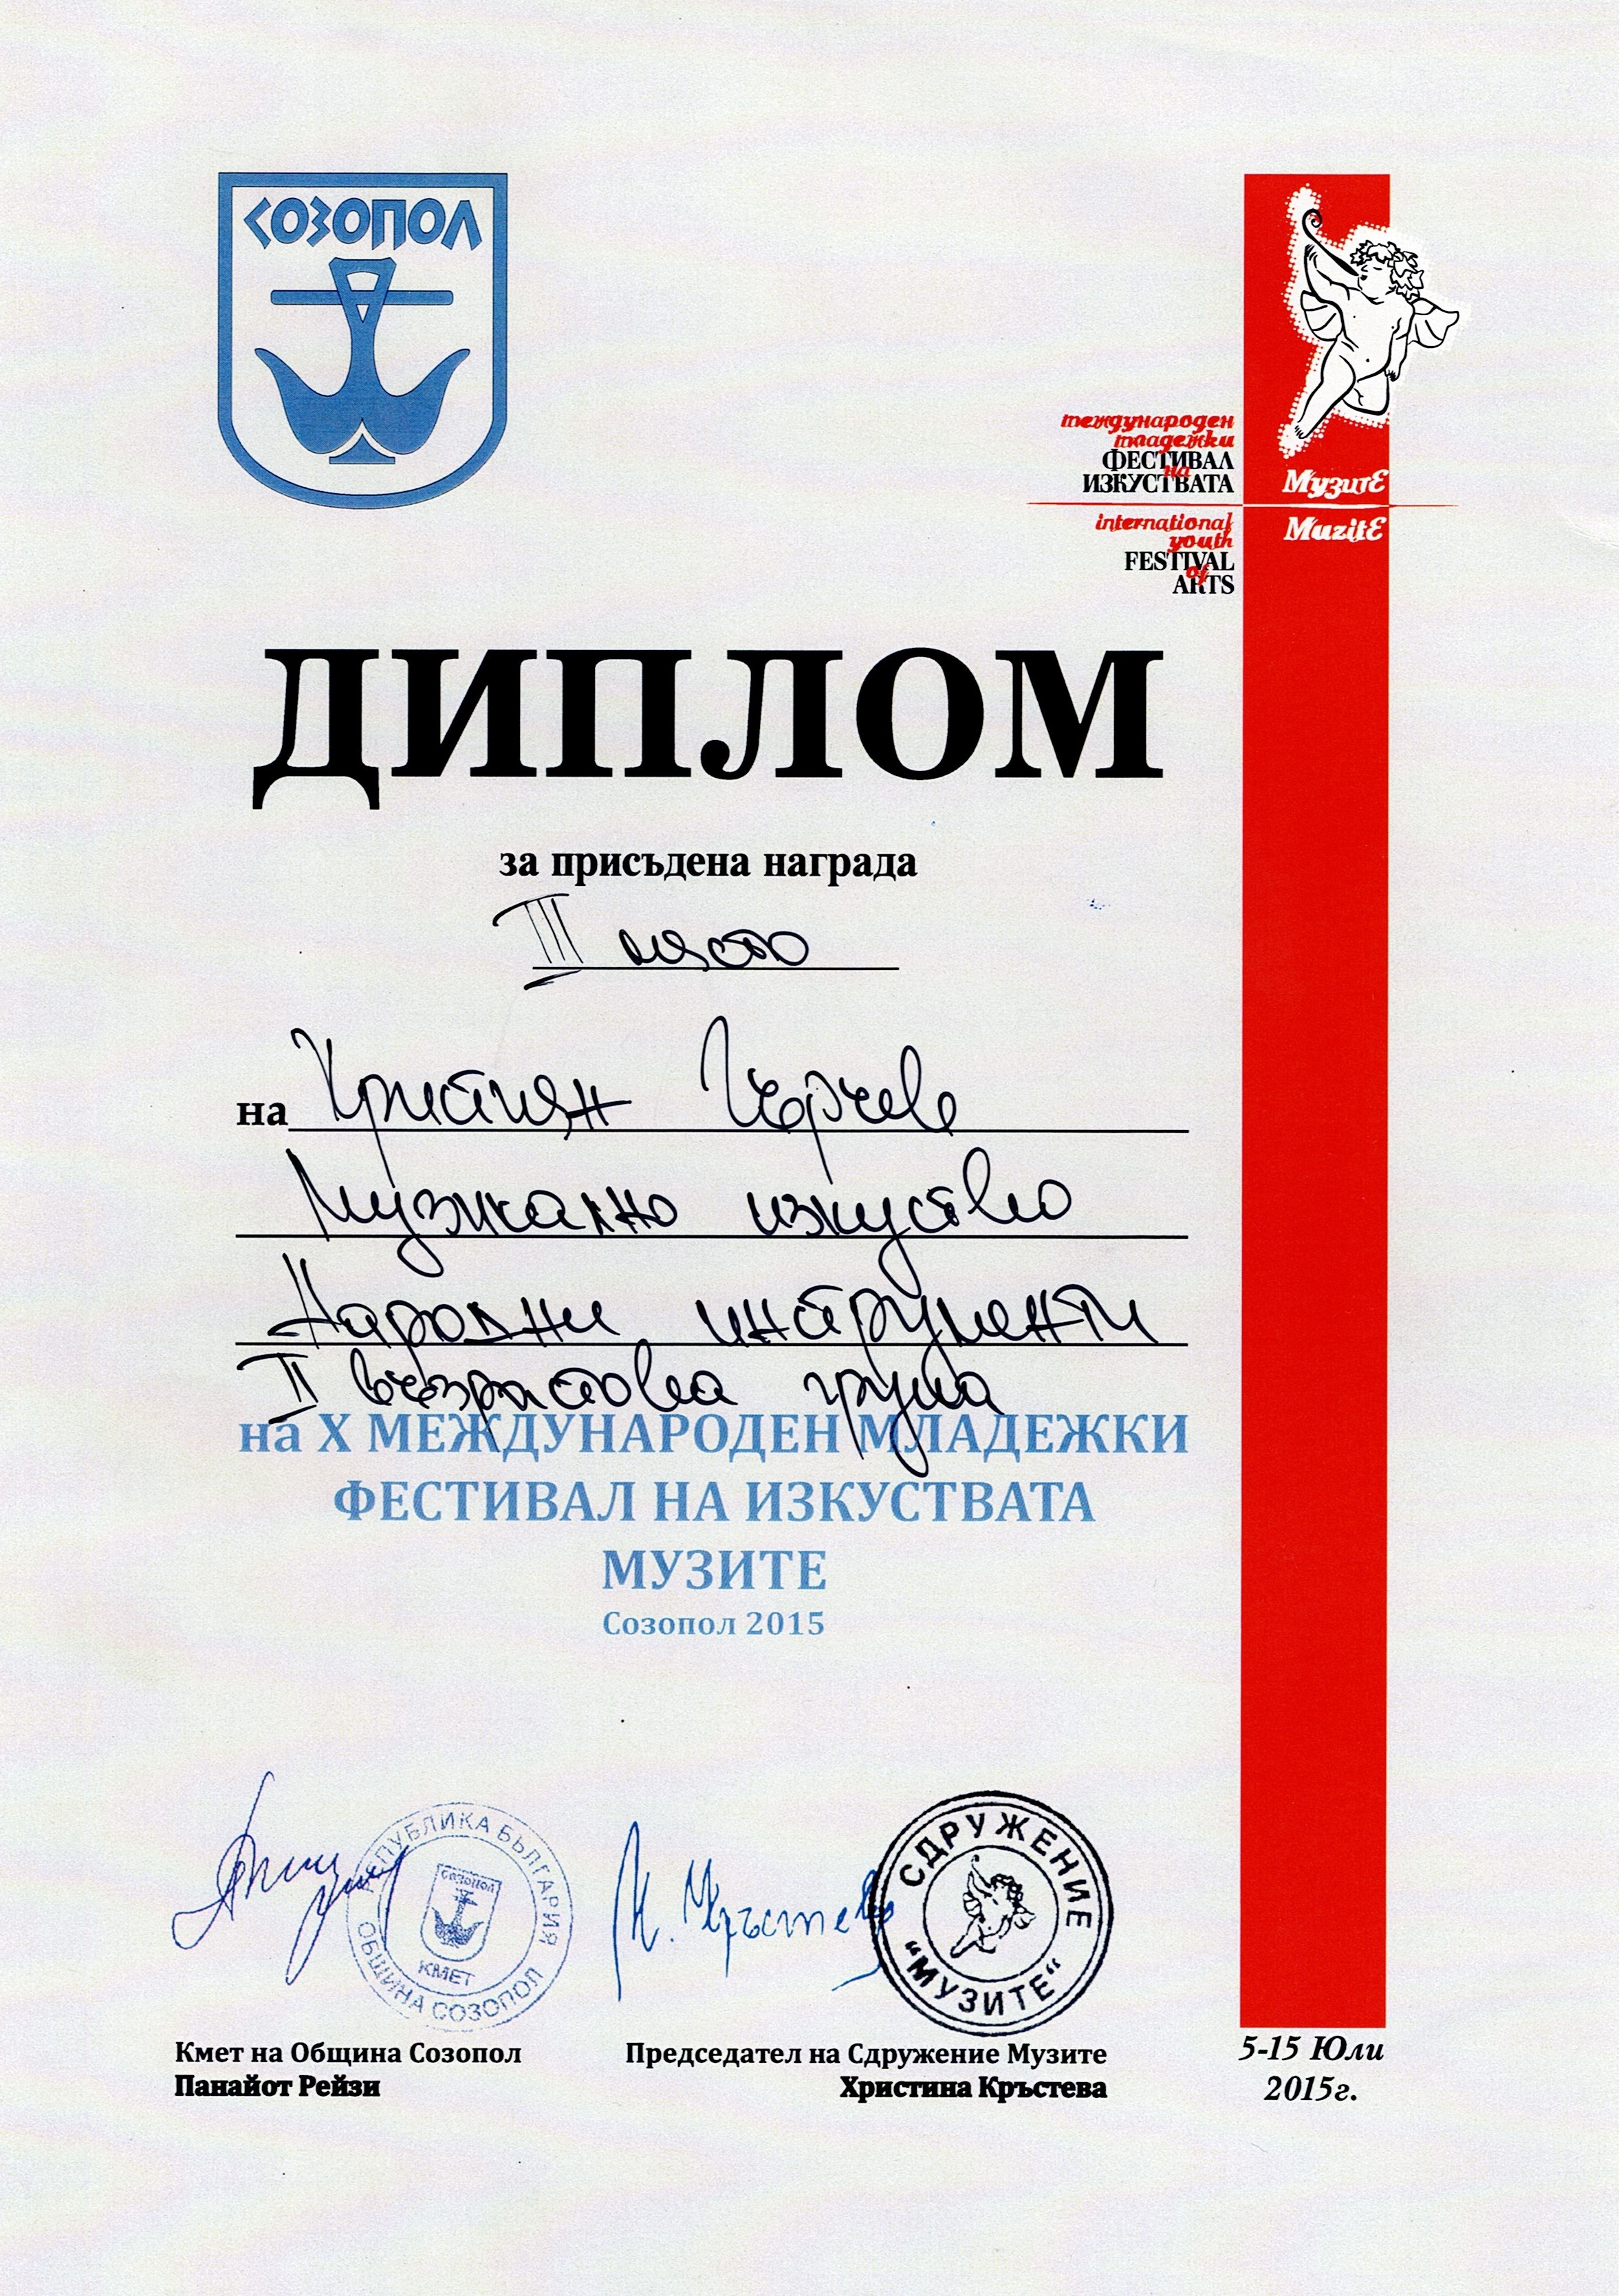 СОЗОПОЛ
международен
младежки
ФЕСТИВАЛ
на
ИЗКУСТВАТА
МузитЕ
international
youth
FESTIVAL
of
ARTS
MuzitE
ДИПЛОМ
за присъдена награда
III място
на Християн Гърчев
Музикално изкуство
Народни инструменти
II възрастова група
на X МЕЖДУНАРОДЕН МЛАДЕЖКИ
ФЕСТИВАЛ НА ИЗКУСТВАТА
МУЗИТЕ
Созопол 2015
РЕПУБЛИКА БЪЛГАРИЯ
СОЗОПОЛ
КМЕТ
ОБЩИНА СОЗОПОЛ
Кръстева
СДРУЖЕНИЕ
“МУЗИТЕ“
Кмет на Община Созопол
Панайот Рейзи
Председател на Сдружение Музите
Христина Кръстева
5-15 Юли
2015г.